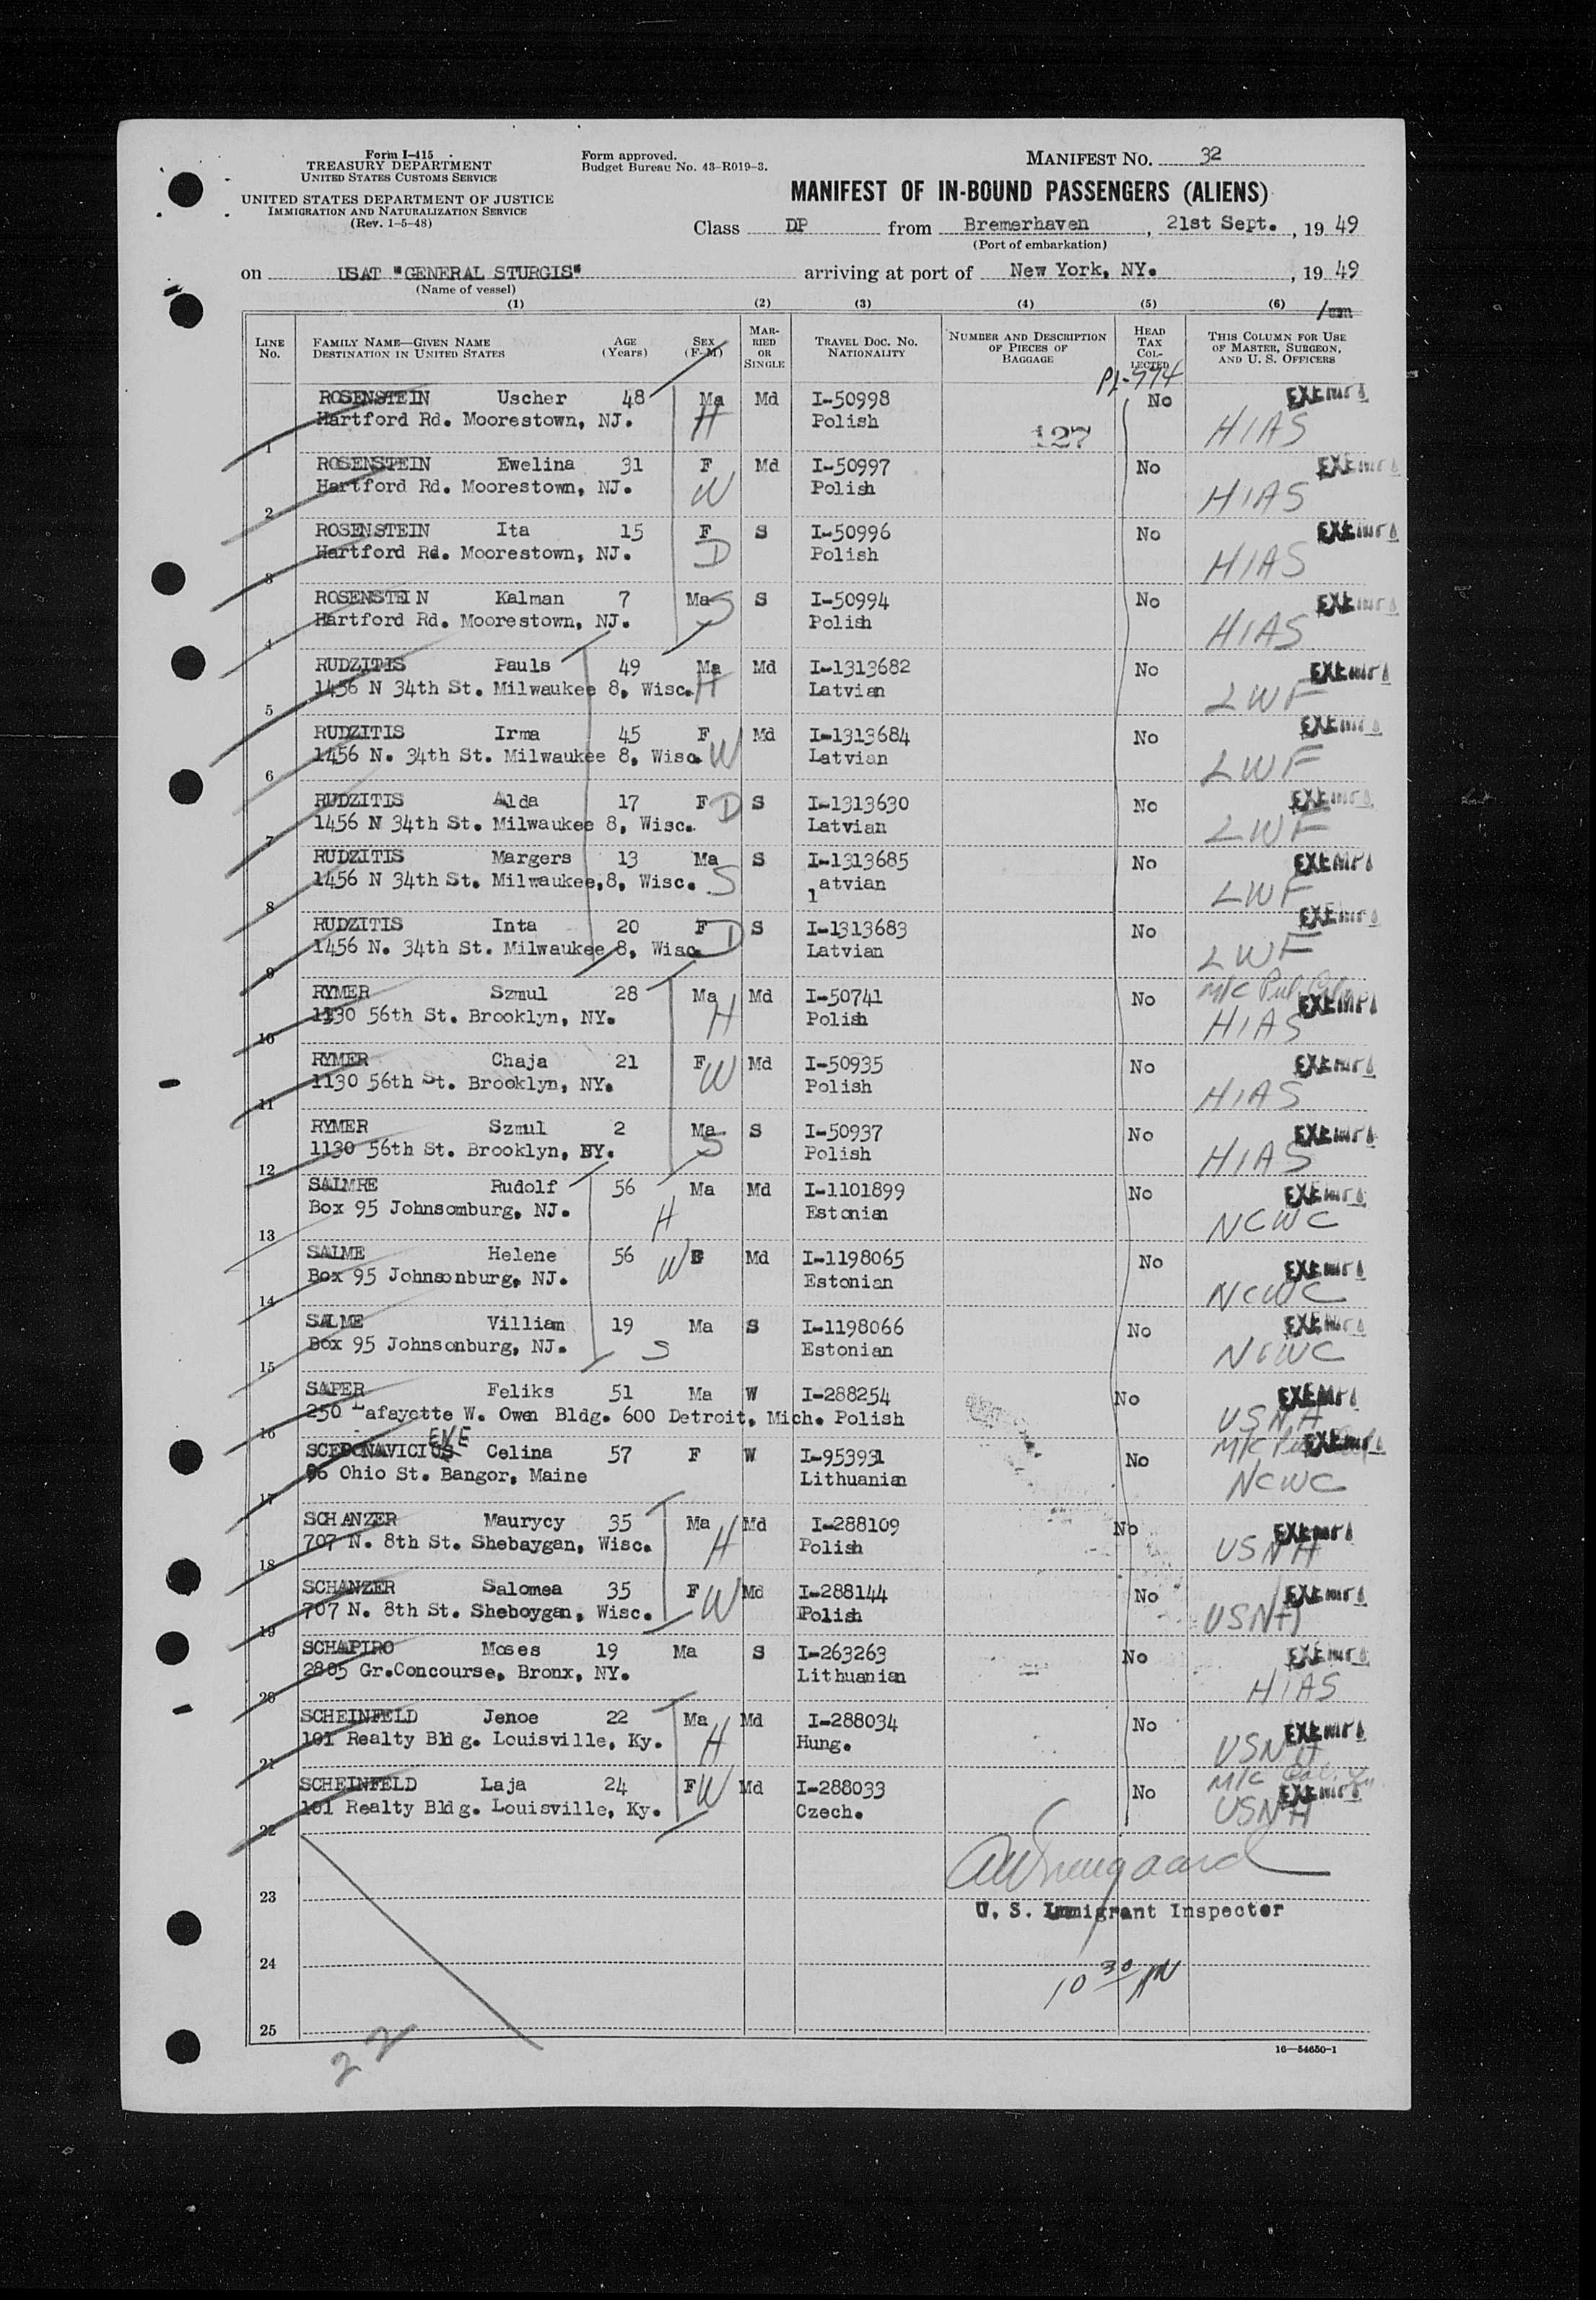 Form I-415
TREASURY DEPARTMENT
UNITED STATES CUSTOMS SERVICE
UNITED STATES DEPARTMENT OF JUSTICE
IMMIGRATION AND NATURALIZATION SERVICE
(Rev. 1-5-48)
Form approved.
Budget Bureau No. 43-R019-3.
MANIFEST NO. 32
MANIFEST OF IN-BOUND PASSENGERS (ALIENS)
Class DP from Bremerhaven, 21st Sept., 19 49
(Port of embarkation)
on USAT "GENERAL STURGIS" arriving at port of New York, NY., 19 49
(Name of vessel)
(1) (2) (3) (4) (5) (6)
LINE No. FAMILY NAME—GIVEN NAME DESTINATION IN UNITED STATES AGE (Years) SEX (F-M) MARRIED OR SINGLE TRAVEL DOC. NO. NATIONALITY NUMBER AND DESCRIPTION OF PIECES OF BAGGAGE HEAD TAX COLLECTED THIS COLUMN FOR USE OF MASTER, SURGEON, AND U. S. OFFICERS
PL-774
ROSENSTEIN Uscher 48 Ma Md I-50998 No EXEMPT
1 Hartford Rd. Moorestown, NJ. H Polish 127 HIAS
ROSENSTEIN Ewelina 31 F Md I-50997 No EXEMPT
2 Hartford Rd. Moorestown, NJ. W Polish HIAS
ROSENSTEIN Ita 15 F S I-50996 No EXEMPT
3 Hartford Rd. Moorestown, NJ. D Polish HIAS
ROSENSTEIN Kalman 7 Ma S S I-50994 No EXEMPT
4 Hartford Rd. Moorestown, NJ. Polish HIAS
RUDZITIS Pauls 49 Ma Md I-1313682 No EXEMPT
5 1456 N 34th St. Milwaukee 8, Wisc. H Latvian LWF
RUDZITIS Irma 45 F Md I-1313684 No EXEMPT
6 1456 N. 34th St. Milwaukee 8, Wisc. W Latvian LWF
RUDZITIS Alda 17 F D S I-1313630 No EXEMPT
7 1456 N 34th St. Milwaukee 8, Wisc. Latvian LWF
RUDZITIS Margers 13 Ma S I-1313685 No EXEMPT
8 1456 N 34th St. Milwaukee,8, Wisc. S latvian LWF
RUDZITIS Inta 20 F D S I-1313683 No EXEMPT
9 1456 N. 34th St. Milwaukee 8, Wisc Latvian LWF
RYMER Szmul 28 Ma Md I-50741 No M/C EXEMPT
10 1130 56th St. Brooklyn, NY. H Polish HIAS
RYMER Chaja 21 F Md I-50935 No EXEMPT
11 1130 56th St. Brooklyn, NY. W Polish HIAS
RYMER Szmul 2 Ma S I-50937 No EXEMPT
12 1130 56th St. Brooklyn, NY. S Polish HIAS
SALMRE Rudolf 56 Ma Md I-1101899 No EXEMPT
13 Box 95 Johnsomburg, NJ. H Estonian NCWC
SALME Helene 56 W Md I-1198065 No EXEMPT
14 Box 95 Johnsonburg, NJ. Estonian NCWC
SALME Villiam 19 Ma S I-1198066 No EXEMPT
15 Box 95 Johnsonburg, NJ. S Estonian NCWC
SAPER Feliks 51 Ma W I-288254 No EXEMPT
16 250 Lafayette W. Owen Bldg. 600 Detroit, Mich. Polish USNA
ENE M/C
SCEPONAVICIUS Celina 57 F W I-953931 No EXEMPT
17 96 Ohio St. Bangor, Maine Lithuanian NCWC
SCHANZER Maurycy 35 Ma Md I-288109 No EXEMPT
18 707 N. 8th St. Shebaygan, Wisc. H Polish USNA
SCHANZER Salomea 35 F W Md I-288144 No EXEMPT
19 707 N. 8th St. Sheboygan, Wisc. Polish USNA
SCHAPIRO Moses 19 Ma S I-263263 No EXEMPT
20 2805 Gr.Concourse, Bronx, NY. Lithuanian HIAS
SCHEINFELD Jenoe 22 Ma Md I-288034 No EXEMPT
21 101 Realty Bldg. Louisville, Ky. H Hung. USNA
M/C
SCHEINFELD Laja 24 F W Md I-288033 No EXEMPT
22 101 Realty Bldg. Louisville, Ky. Czech. USNA
23
U. S. Immigrant Inspector
24
10 30 AM
25
22
16—54650-1